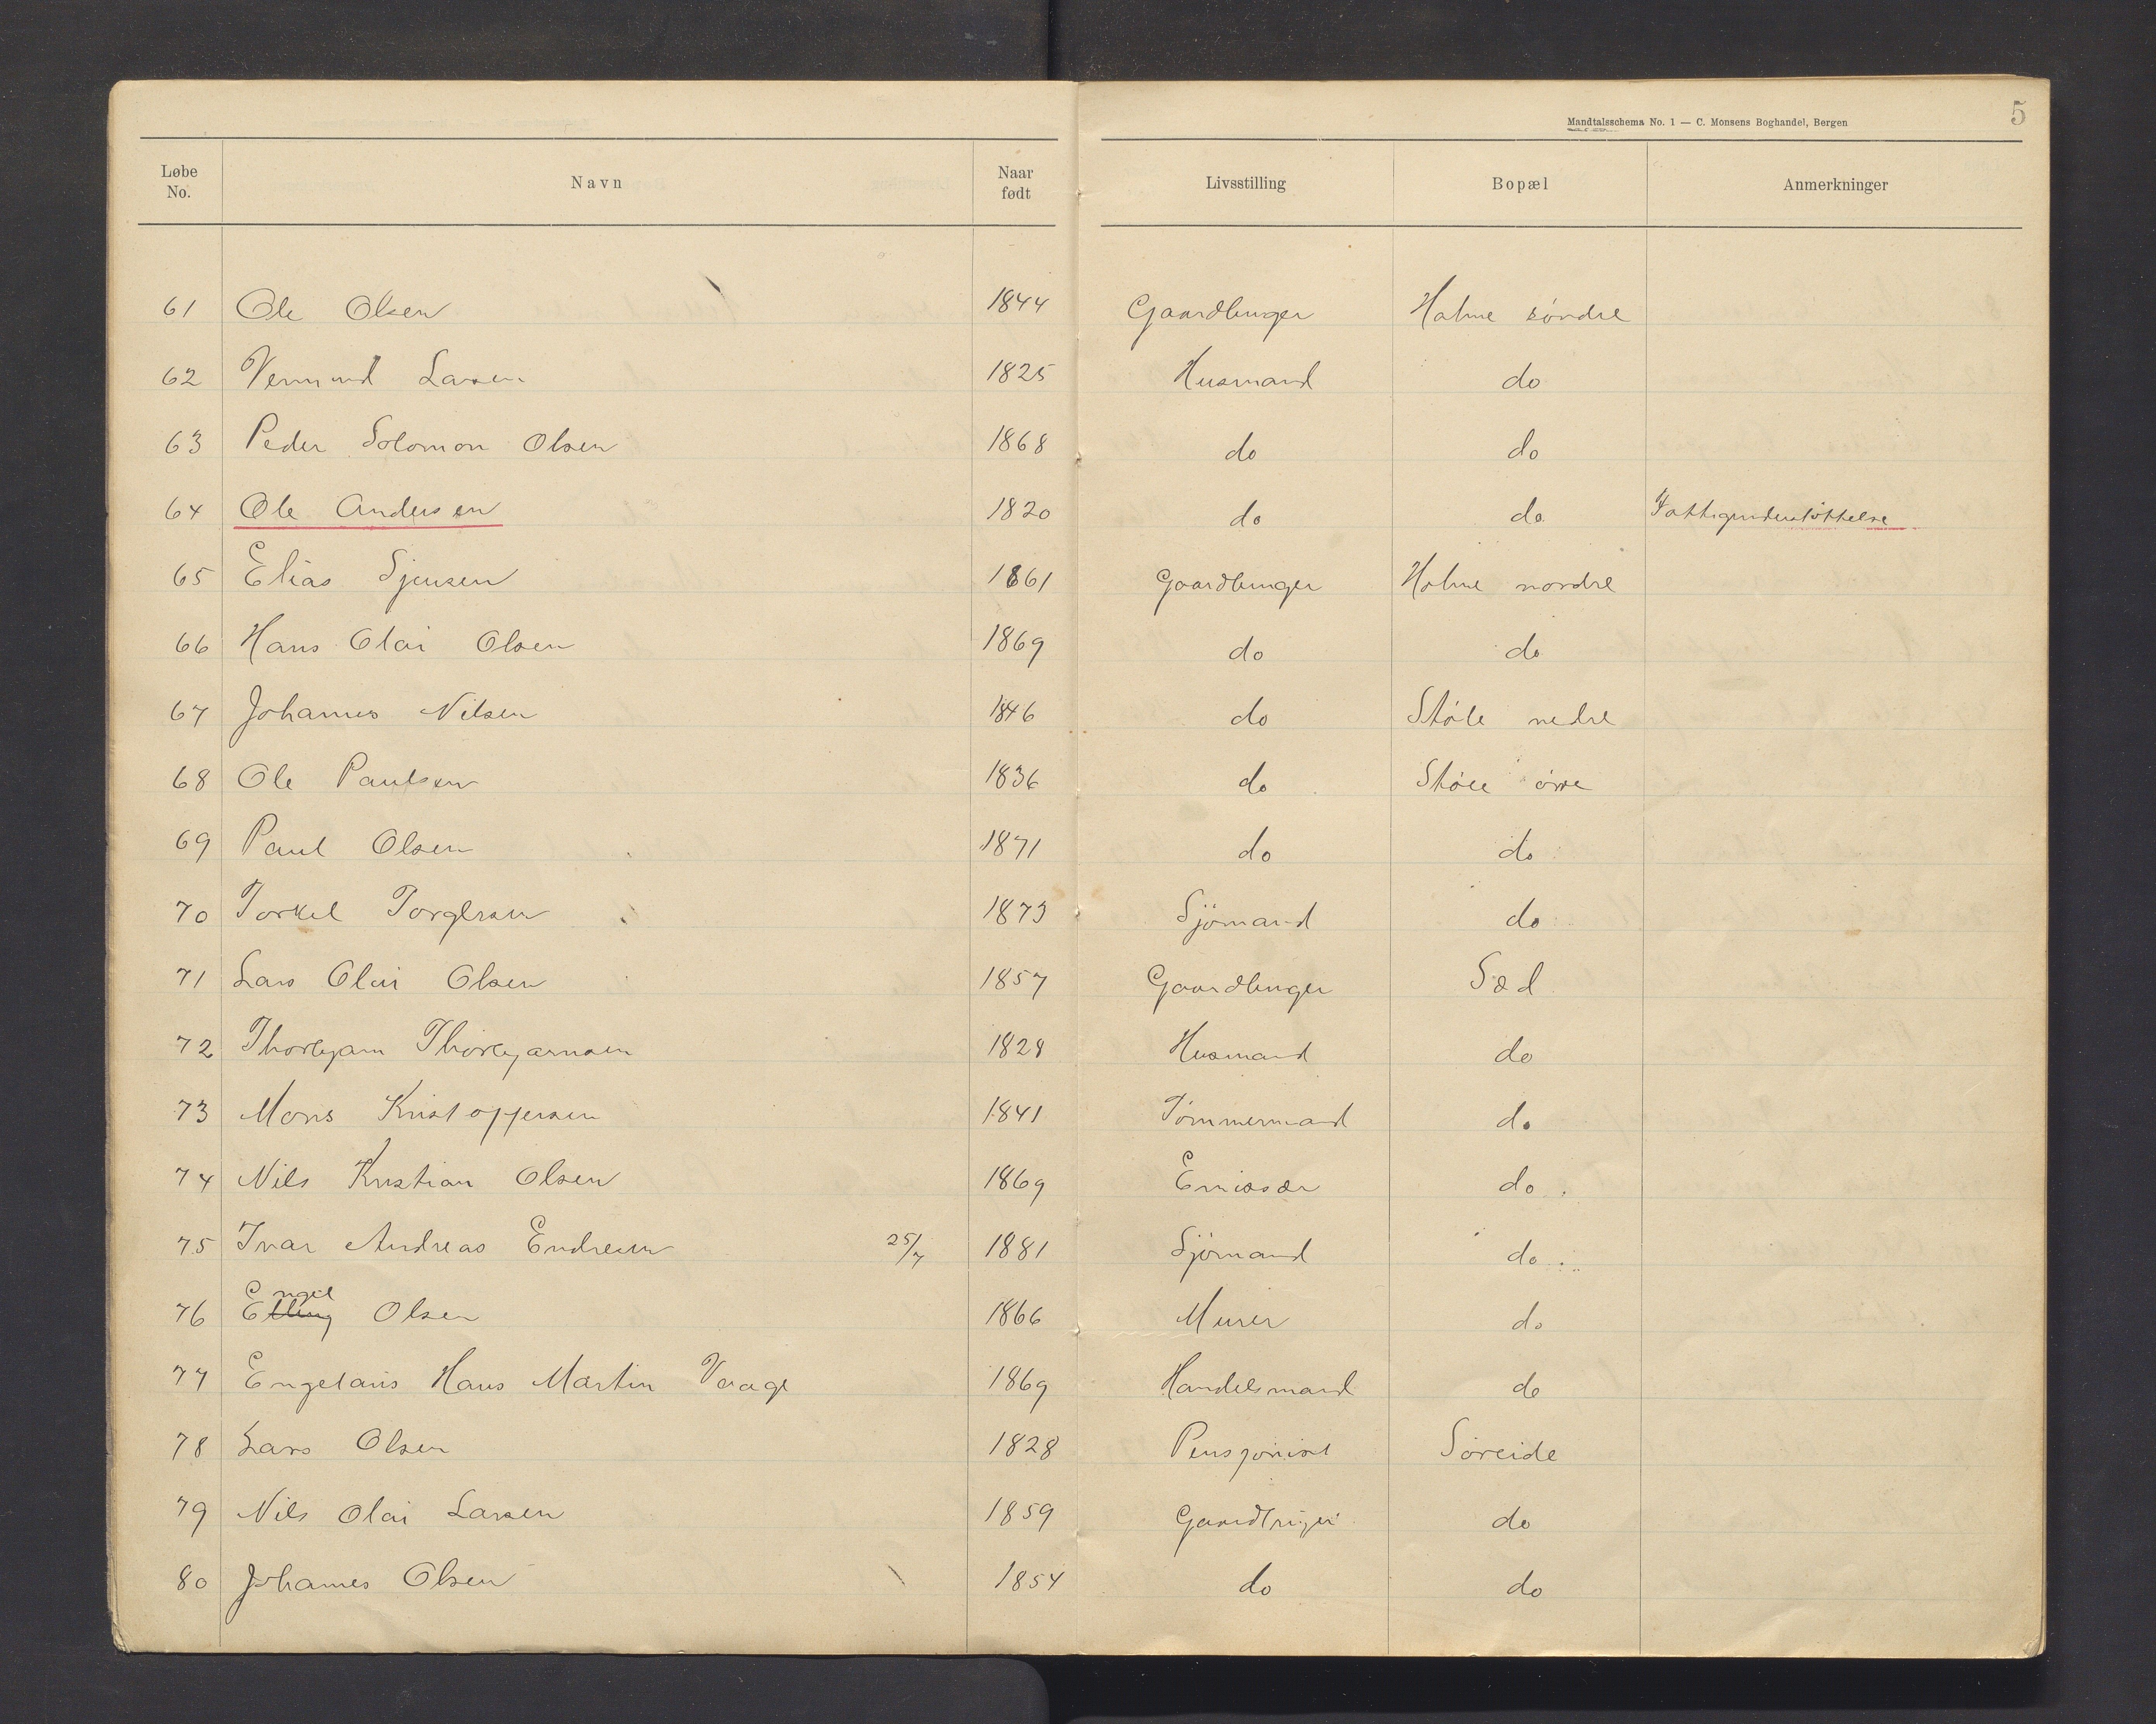 Mandtalsschema No. 1 — C. Monsens Boghandel, Bergen 5
Løbe No. Navn Naar født Livsstilling Bopæl Anmerkninger
61 Ole Olsen 1844 Gaardbruger Holme söndre
62 Vermund Larsen 1825 Husmand do
63 Peder Solomon Olsen 1868 do do
64 Ole Andersen 1820 do do Fattigunderstöttelse
65 Elias Sjursen 1861 Gaardbruger Holme nordre
66 Hans Olai Olsen 1869 do do
67 Johannes Nilsen 1846 do Støle nedre
68 Ole Paulsen 1836 do Støle övre
69 Paul Olsen 1871 do do
70 Torkel Torgersen 1873 Sjömand do
71 Lars Olai Olsen 1857 Gaardbruger Sæd
72 Thorbjørn Thorbjørnsen 1828 Husmand do
73 Mons Kristoffersen 1841 Tömmermand do
74 Nils Kristian Olsen 1869 Emissær do
75 Ivar Andreas Endresen 25/7 1881 Sjömand do
76 Engel Olsen 1866 Murer do
77 Engelaus Hans Martin Vaage 1869 Handelsmand do
78 Lars Olsen 1828 Pensjonist Söreide
79 Nils Olai Larsen 1859 Gaardbruger do
80 Johannes Olsen 1854 do do